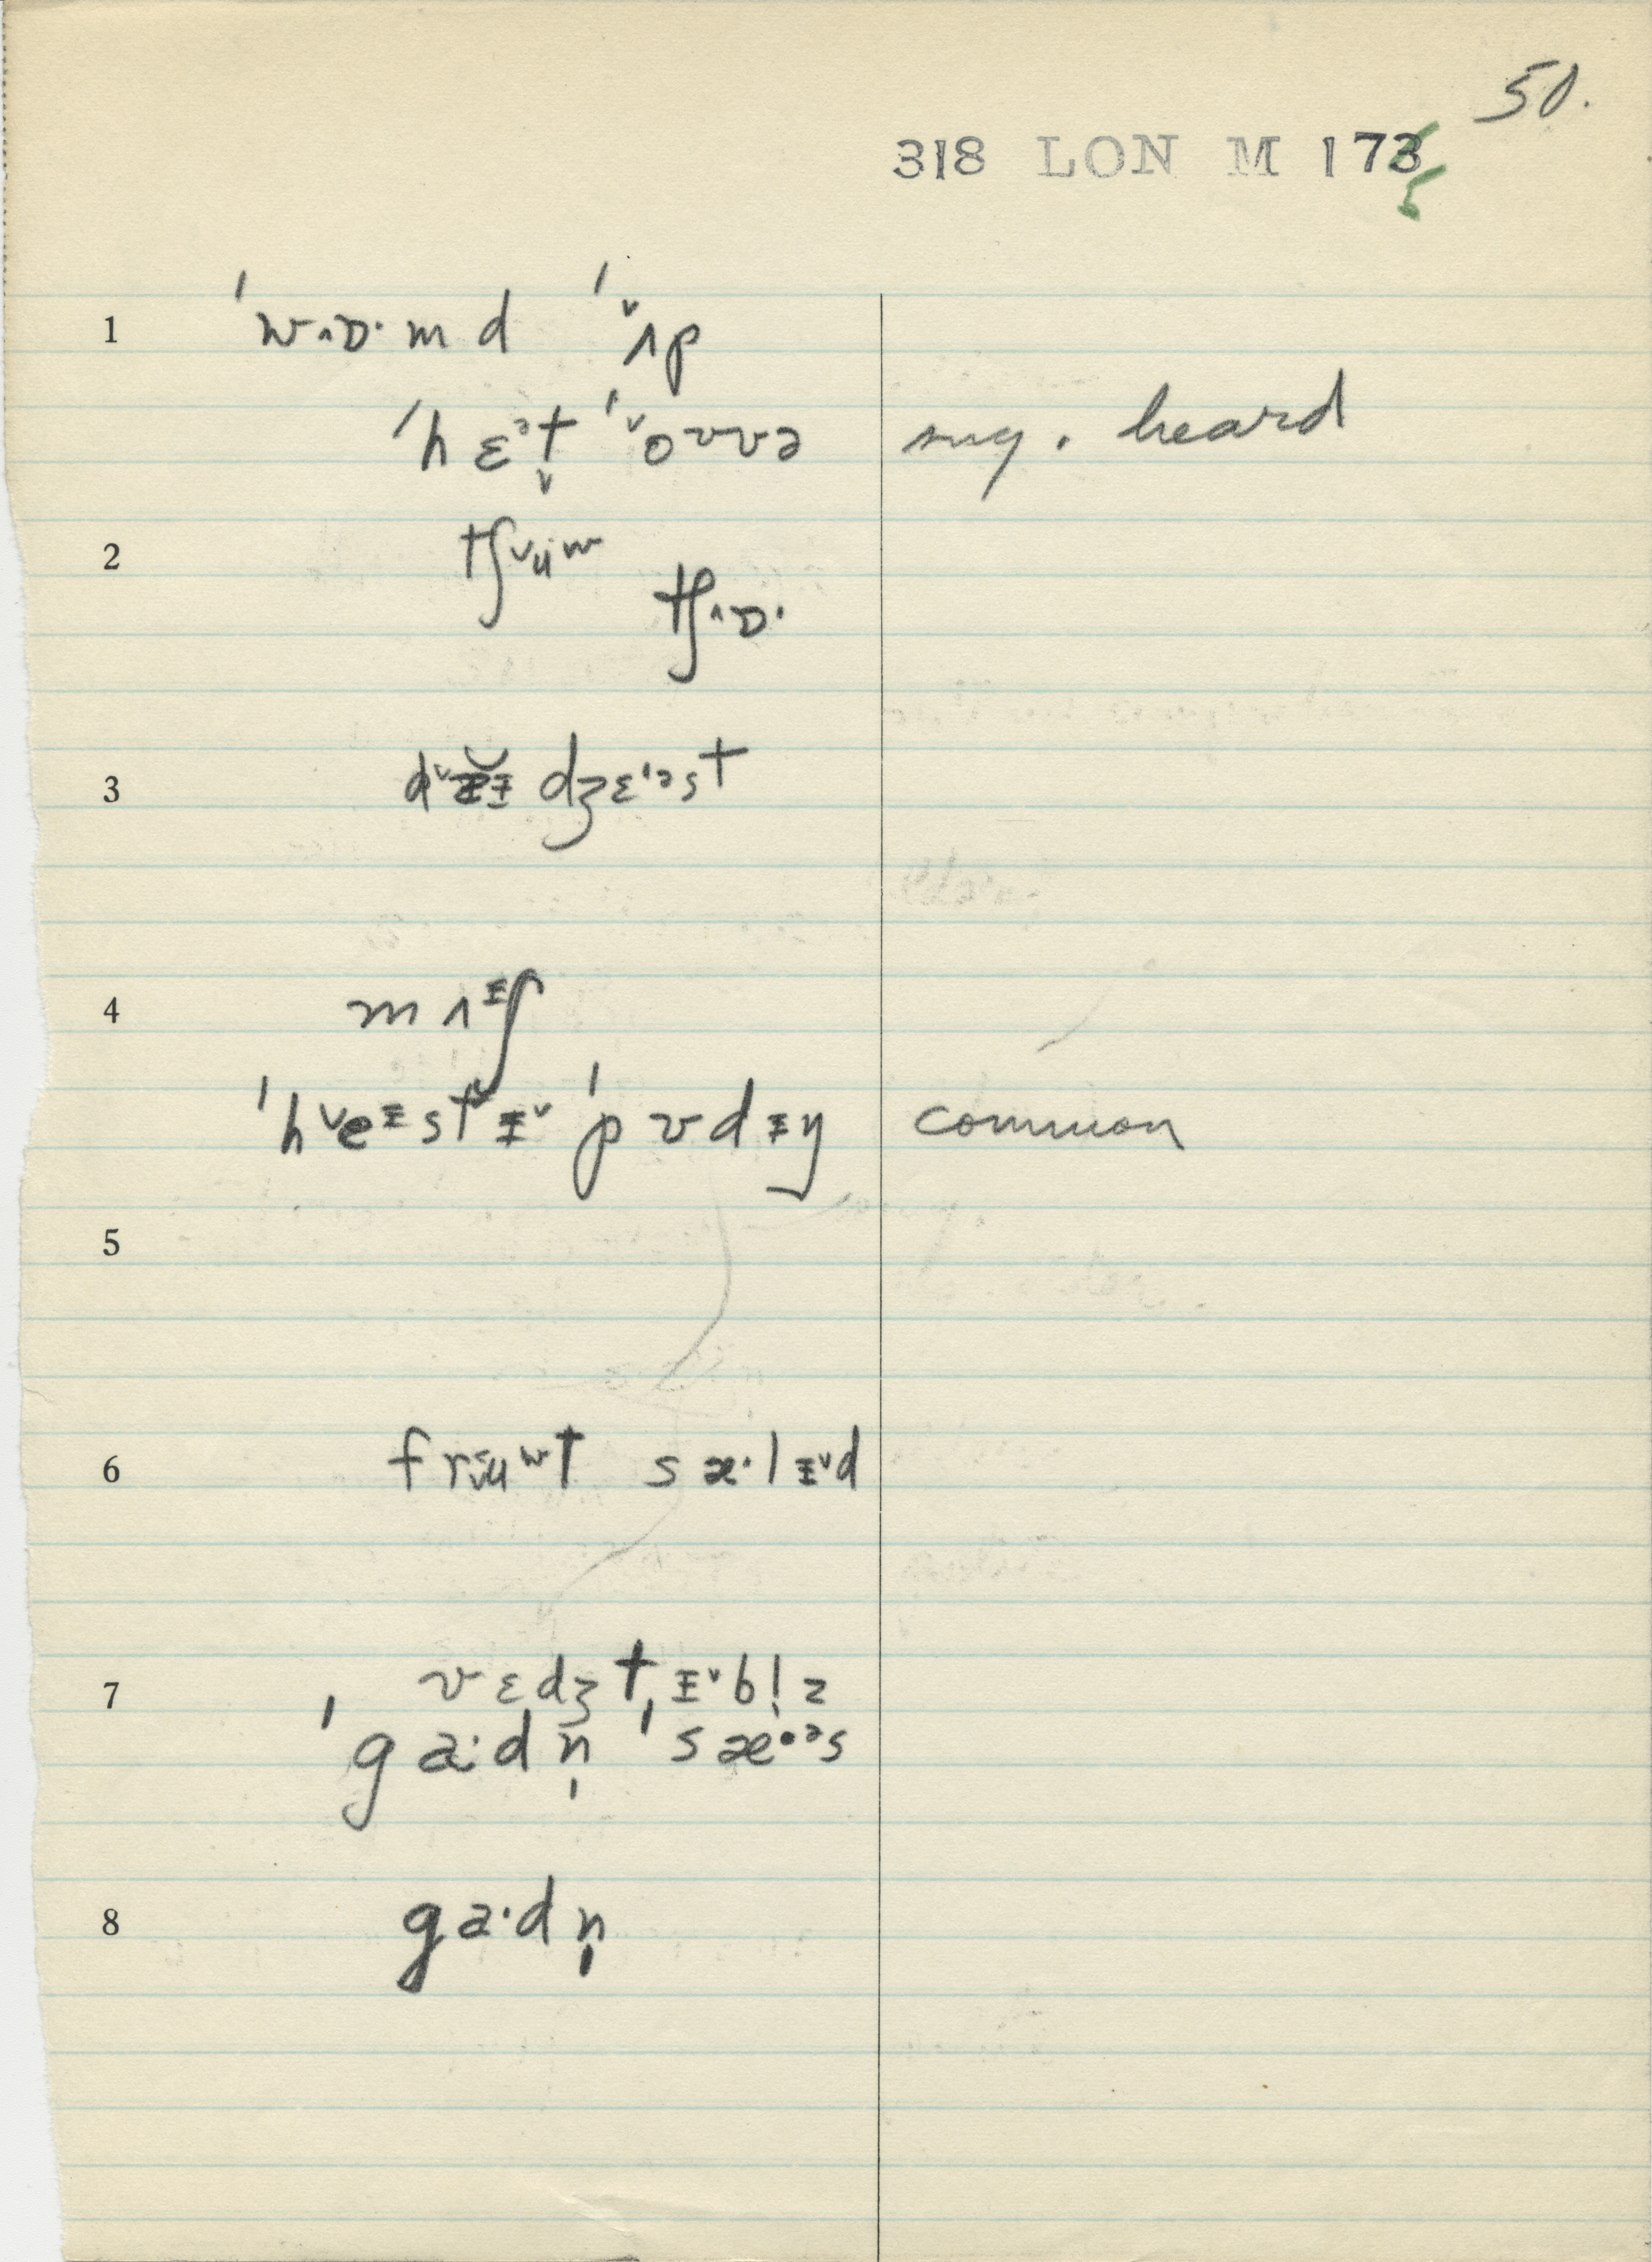 50.
318 LON M 175
1 ˈw˄ɒ·md ˈ˅ʌp
ˈhɛᵊt̬ ˈ˅oʊvə sug. heard
2 tʃ˅ʉʷ
tʃ˄ɒ·
3 d˅ɪ dʒɛ'ᵊst
4 mʌᵻʃ
ˈh˅eᵻst˅ᵻ˅ ˈpʊdᵻŋ common
5
6 frʉʷt sæ·lᵻ˅d
7 vɛdʒtᵻ˅bl̩z
ˈga·dn̩ ˈsæ·ᵊs
8 ga·dn̩